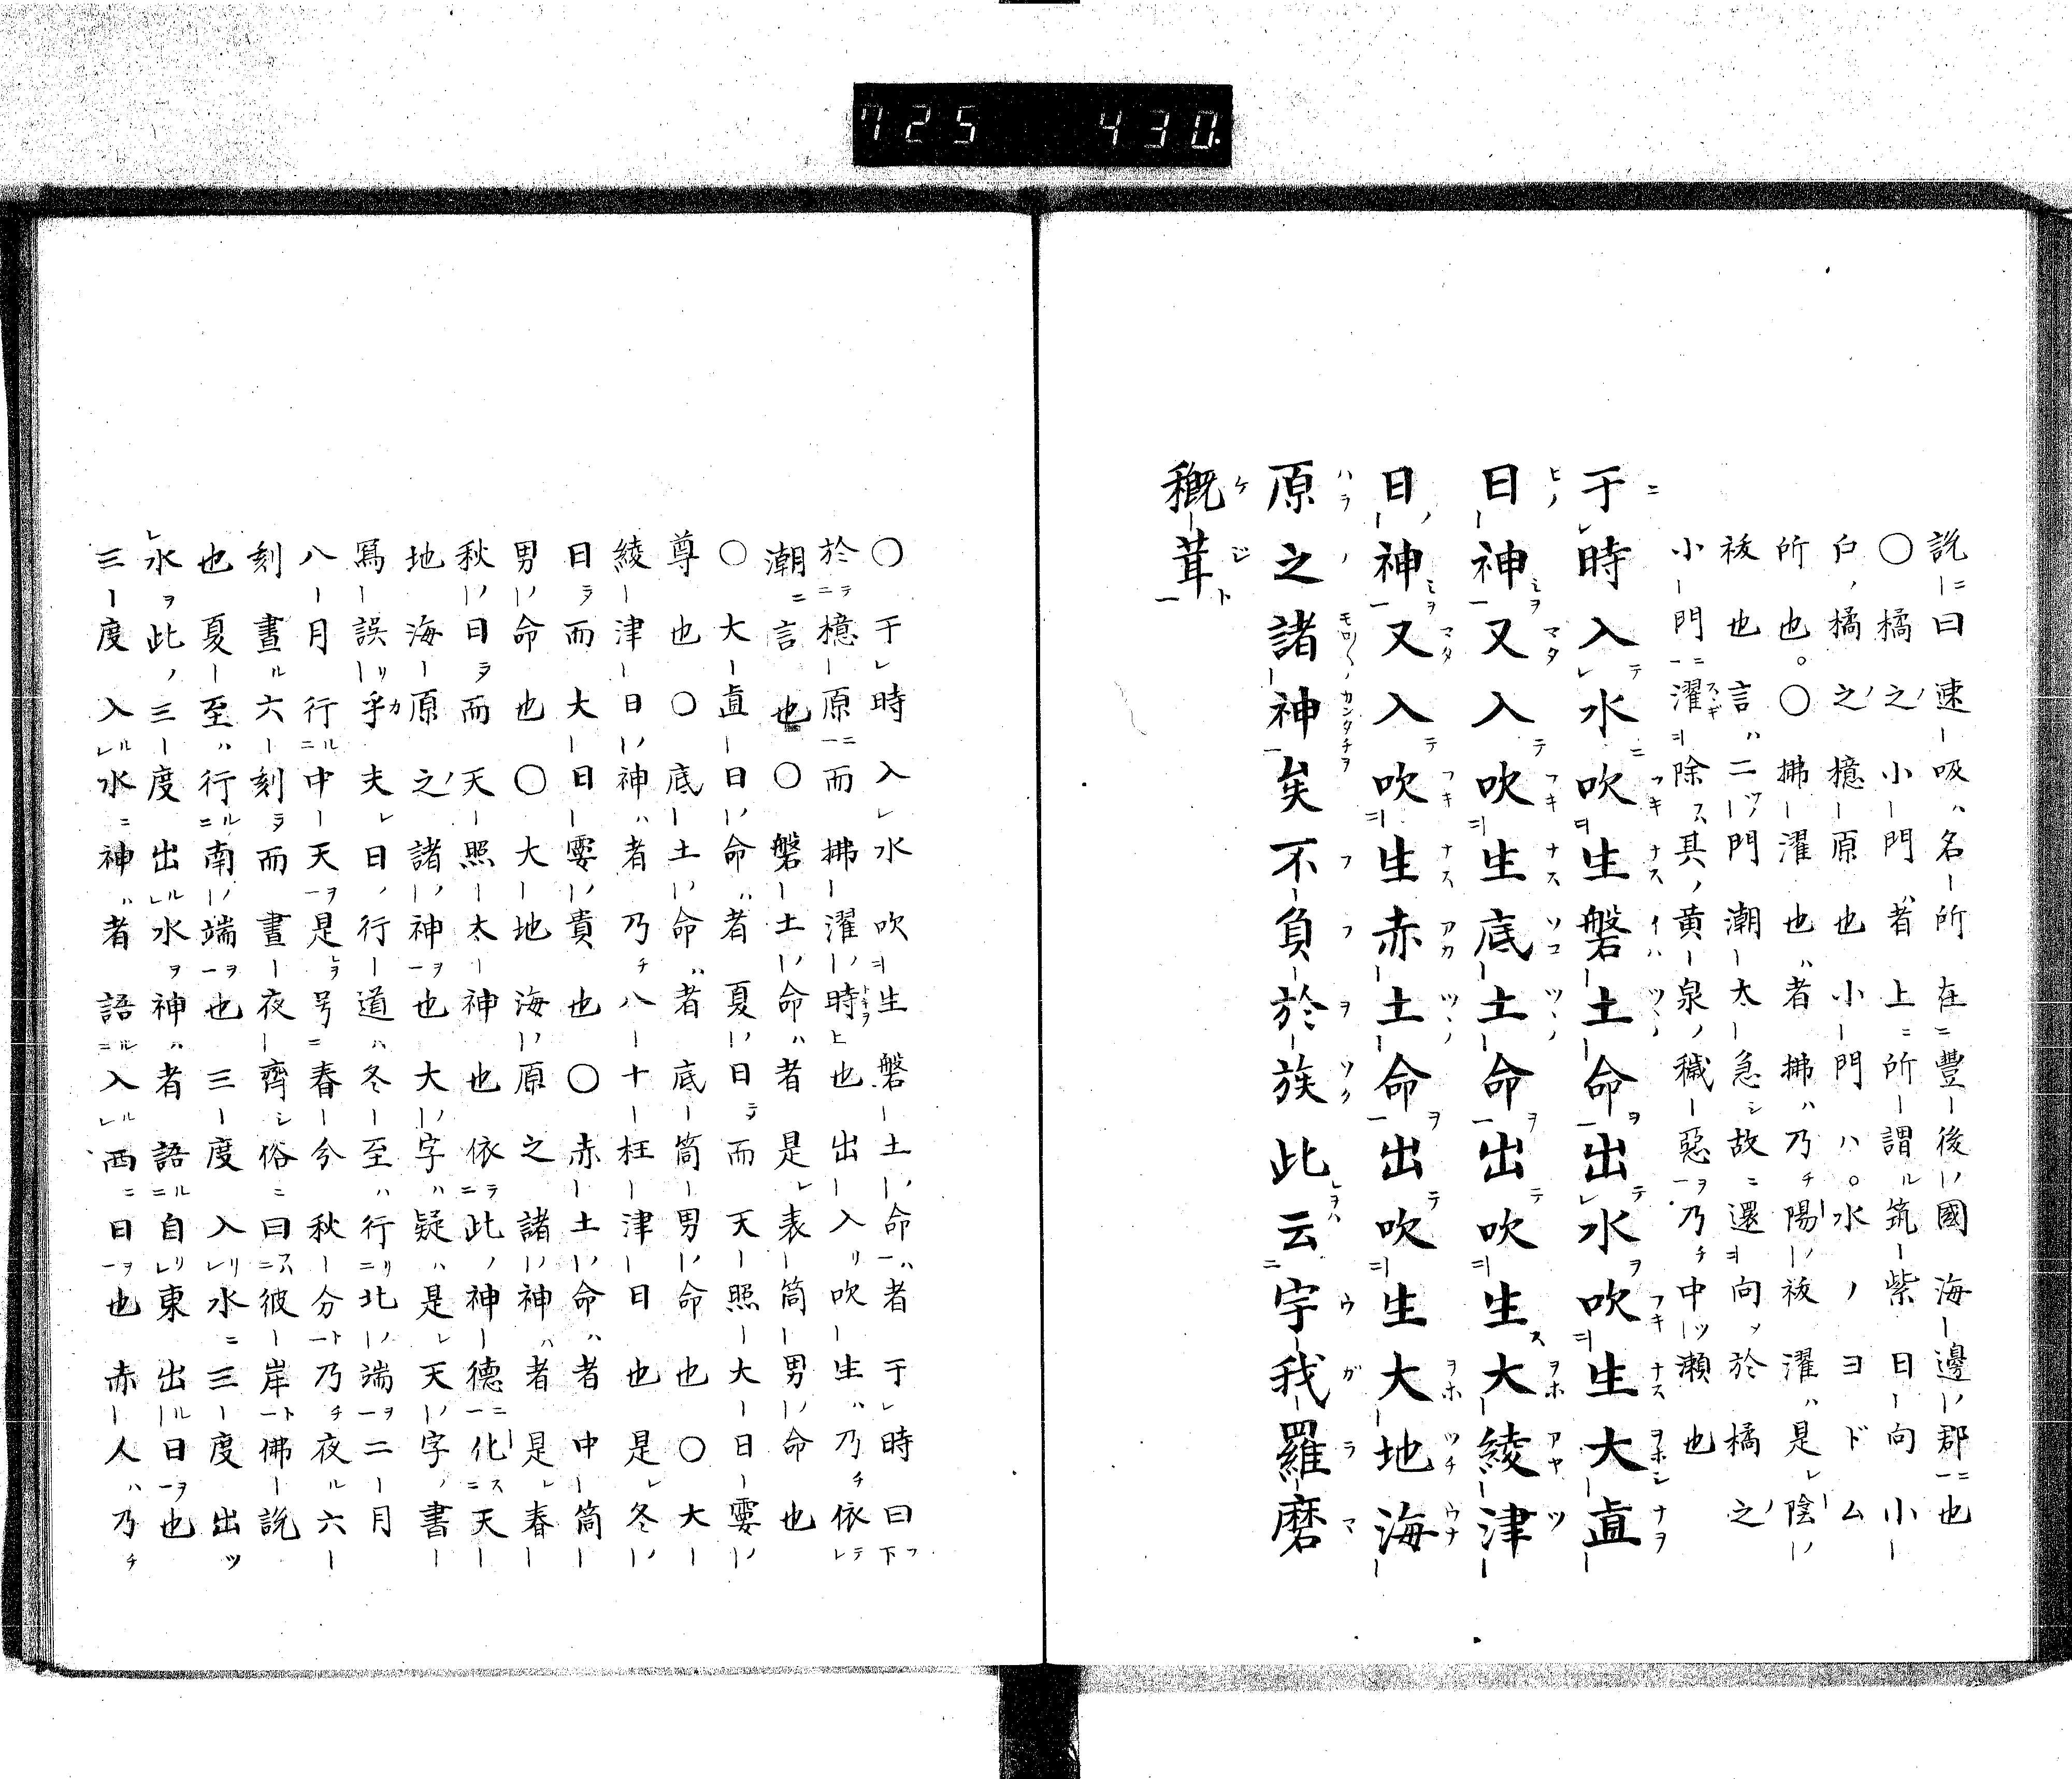 725 430.
説曰速吸名所在豐後國海邊郡也
〇橘之小門者上所謂筑紫日向小
戸橘之檍原也小門ハ。水ノヨドム
所也。〇拂濯也者拂乃陽祓濯是陰
祓也言二門潮太急故還向於橘之
小門濯除其黄泉穢惡乃中瀬也
于時入水吹生磐土命出水吹生大直
日神又入吹生底土命出吹生大綾津
日神又入吹生赤土命出吹生大地海
原之諸神矣不負於族此云宇我羅磨
穊茸
〇于時入水吹生磐土命者于時曰下
於檍原而拂濯時也出入吹生乃依
潮言也〇磐土命者是表筒男命也
〇大直日命者夏日而天照大日孁
尊也〇底土命者底筒男命也〇大
綾津日神者乃八十枉津日也是冬
日而大日孁貴也〇赤土命者中筒
男命也〇大地海原之諸神者是春
秋日而天照太神也依此神德化天
地海原之諸神也大字疑是天字書
寫誤乎夫日行道冬至行北端二月
八月行中天是号春分秋分乃夜六
刻晝六刻而晝夜齊俗曰彼岸佛説
也夏至行南端也三度入水三度出
水此三度出水神者語自東出日也
三度入水神者語入西日也赤人乃